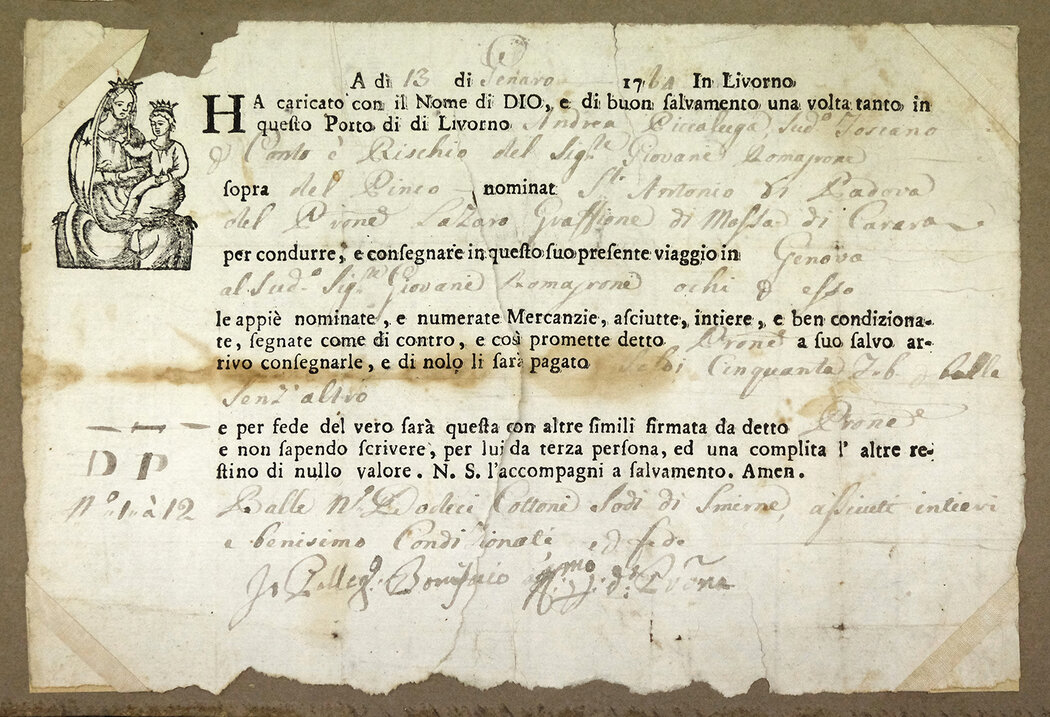 A di 13 di Genaro 1764 In Livorno
HA caricato con il Nome di DIO, e di buon ſalvamento una volta tanto in
queſto Porto di di Livorno Andrea Piccaluga, Sudo. Toscano
Conto è Rischio del Sigre. Giovane Romagrone
ſopra del Pinco nominat St. Antonio di Padova
del Prone Lazaro Graffione di Massa di Carara
per condurre, e conſegnare in queſto ſuo preſente viaggio in Genova
al Sudo. Sigre Giovane Romagrone o chi esso
le appiè nominate, e numerate Mercanzie, aſciutte, intiere, e ben condiziona-
te, ſegnate come di contro, e così promette detto Prone a ſuo ſalvo ar-
rivo conſegnarle, e di nolo li ſarà pagato Soldi Cinquanta balle
senz' altro
e per fede del vero ſarà queſta con altre ſimili firmata da detto Prone
e non ſapendo ſcrivere, per lui da terza perſona, ed una complita l' altre re-
ſtino di nullo valore. N. S. l'accompagni a ſalvamento. Amen.
D P
No. 1 à 12 Balle No. Dodeci Cottoni Sodi di Smirne, assiuti intieri
e benisimo Condizionate, e fede
Bonifacio do. Prone